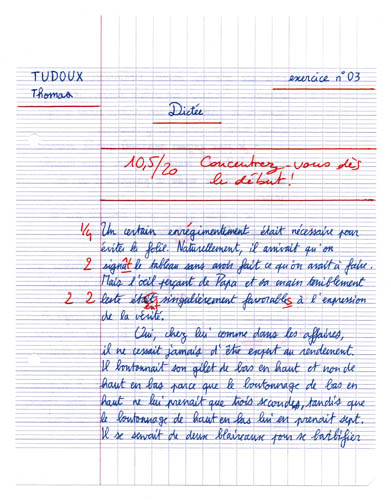 TUDOUX exercice n° 03
Thomas
Dictée
10,5/20 Concentrez-vous dès
le début !
1/4 Un certain enrégimentement était nécessaire pour
éviter la folie. Naturellement, il arrivait qu'on
2 signât le tableau sans avoir fait ce qu'on avait à faire.
Mais l'œil perçant de Papa et sa main terriblement
2 2 leste étaient singulièrement favorables à l'expression
de la vérité.
Oui, chez lui comme dans les affaires,
il ne cessait jamais d'être expert au rendement.
Il boutonnait son gilet de bas en haut et non de
haut en bas parce que le boutonnage de bas en
haut ne lui prenait que trois secondes, tandis que
le boutonnage de haut en bas lui en prenait sept.
Il se servait de deux blaireaux pour se barbifier